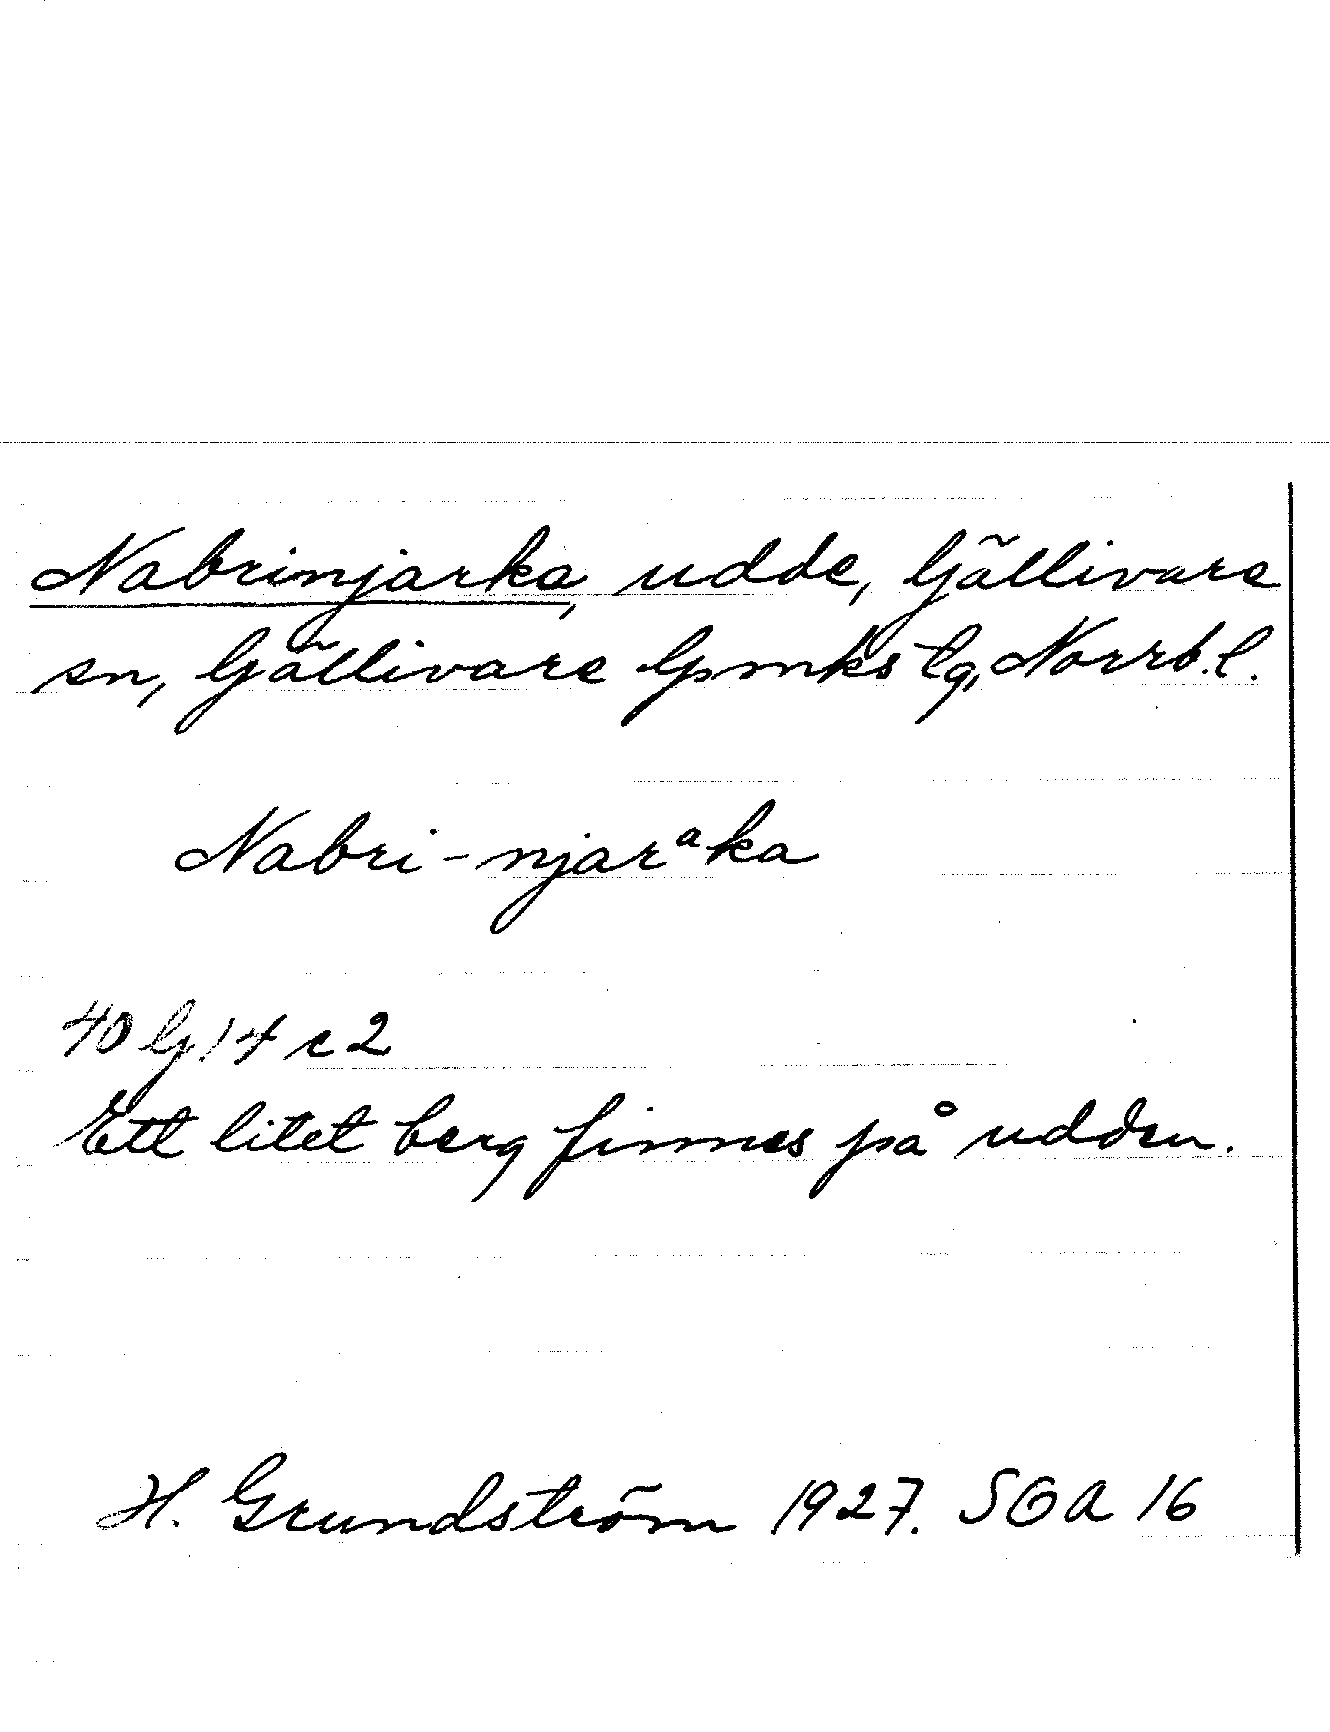 Nabrinjarka, udde, Gällivare
sn, Gällivare lpmks tg, Norrb. l.
Nabri-njarᵃka
40 G 14 c 2
Ett litet berg finnes på udden.
H. Grundström 1927. SOA 16